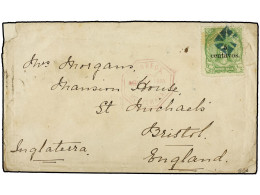 Mrs Morgans.
Mansion House.
St Michaels
Bristol.
Inglaterra.
England.
centavos